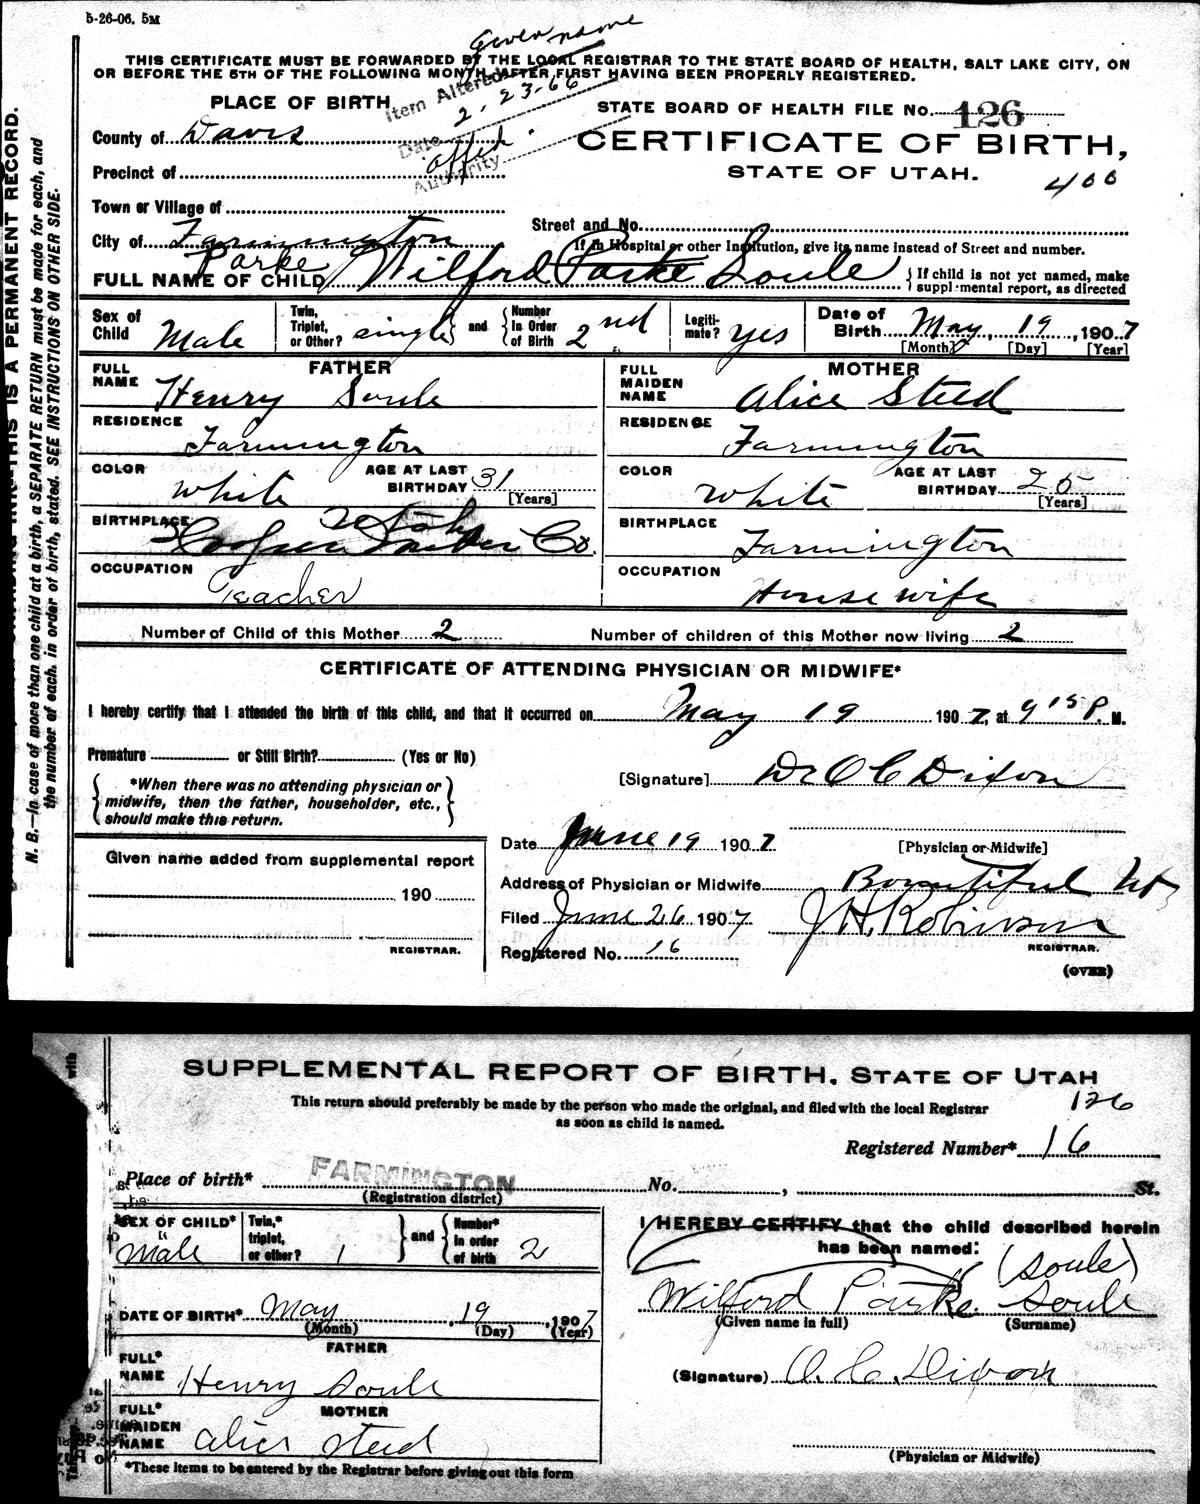 5-26-06. 5M
Given name
THIS CERTIFICATE MUST BE FORWARDED BY THE LOCAL REGISTRAR TO THE STATE BOARD OF HEALTH, SALT LAKE CITY, ON
OR BEFORE THE 5TH OF THE FOLLOWING MONTH, AFTER FIRST HAVING BEEN PROPERLY REGISTERED.
Item Altered
Date 2-23-66
Authority affid.
PLACE OF BIRTH
STATE BOARD OF HEALTH FILE No. 126
County of Davis
CERTIFICATE OF BIRTH,
Precinct of
STATE OF UTAH.
400
Town or Village of
Street and No.
City of Farmington
If in Hospital or other Institution, give its name instead of Street and number.
Parke
FULL NAME OF CHILD Wilford Parke Soule
If child is not yet named, make
supplemental report, as directed
Sex of Child Male
Twin, Triplet, or Other? single
and
Number In Order of Birth 2nd
Legitimate? yes
Date of Birth May 19, 1907
[Month] [Day] [Year]
FATHER
MOTHER
FULL NAME Henry Soule
FULL MAIDEN NAME Alice Steed
RESIDENCE Farmington
RESIDENCE Farmington
COLOR White
AGE AT LAST BIRTHDAY 31
[Years]
COLOR White
AGE AT LAST BIRTHDAY 25
[Years]
BIRTHPLACE Co.
BIRTHPLACE Farmington
OCCUPATION Teacher
OCCUPATION House wife
Number of Child of this Mother 2
Number of children of this Mother now living 2
CERTIFICATE OF ATTENDING PHYSICIAN OR MIDWIFE*
I hereby certify that I attended the birth of this child, and that it occurred on May 19 1907, at 9 15 P. M.
Premature or Still Birth? (Yes or No)
*When there was no attending physician or
midwife, then the father, householder, etc.,
should make this return.
[Signature] Dr O C Dixon
[Physician or Midwife]
Date June 19 1907
Given name added from supplemental report
190
REGISTRAR.
Address of Physician or Midwife Bountiful Ut
Filed June 26 1907
J H. Robinson
REGISTRAR.
Registered No. 16
(OVER)
N. B.—In case of more than one child at a birth, a SEPARATE RETURN must be made for each, and
the number of each, in order of birth, stated. SEE INSTRUCTIONS ON OTHER SIDE.
THIS IS A PERMANENT RECORD.
SUPPLEMENTAL REPORT OF BIRTH, STATE OF UTAH
This return should preferably be made by the person who made the original, and filed with the local Registrar
as soon as child is named.
126
Registered Number* 16
Place of birth* FARMINGTON No. , St.
(Registration district)
SEX OF CHILD* Male
Twin,* triplet, or other? 1
and
Number* in order of birth 2
I HEREBY CERTIFY that the child described herein
has been named:
(Soule)
Wilford Parke Soule
(Given name in full) (Surname)
DATE OF BIRTH* May 19, 1907
(Month) (Day) (Year)
FATHER
FULL* NAME Henry Soule
(Signature) O. C. Dixon
(Physician or Midwife)
MOTHER
FULL* MAIDEN NAME Alice Steed
*These items to be entered by the Registrar before giving out this form